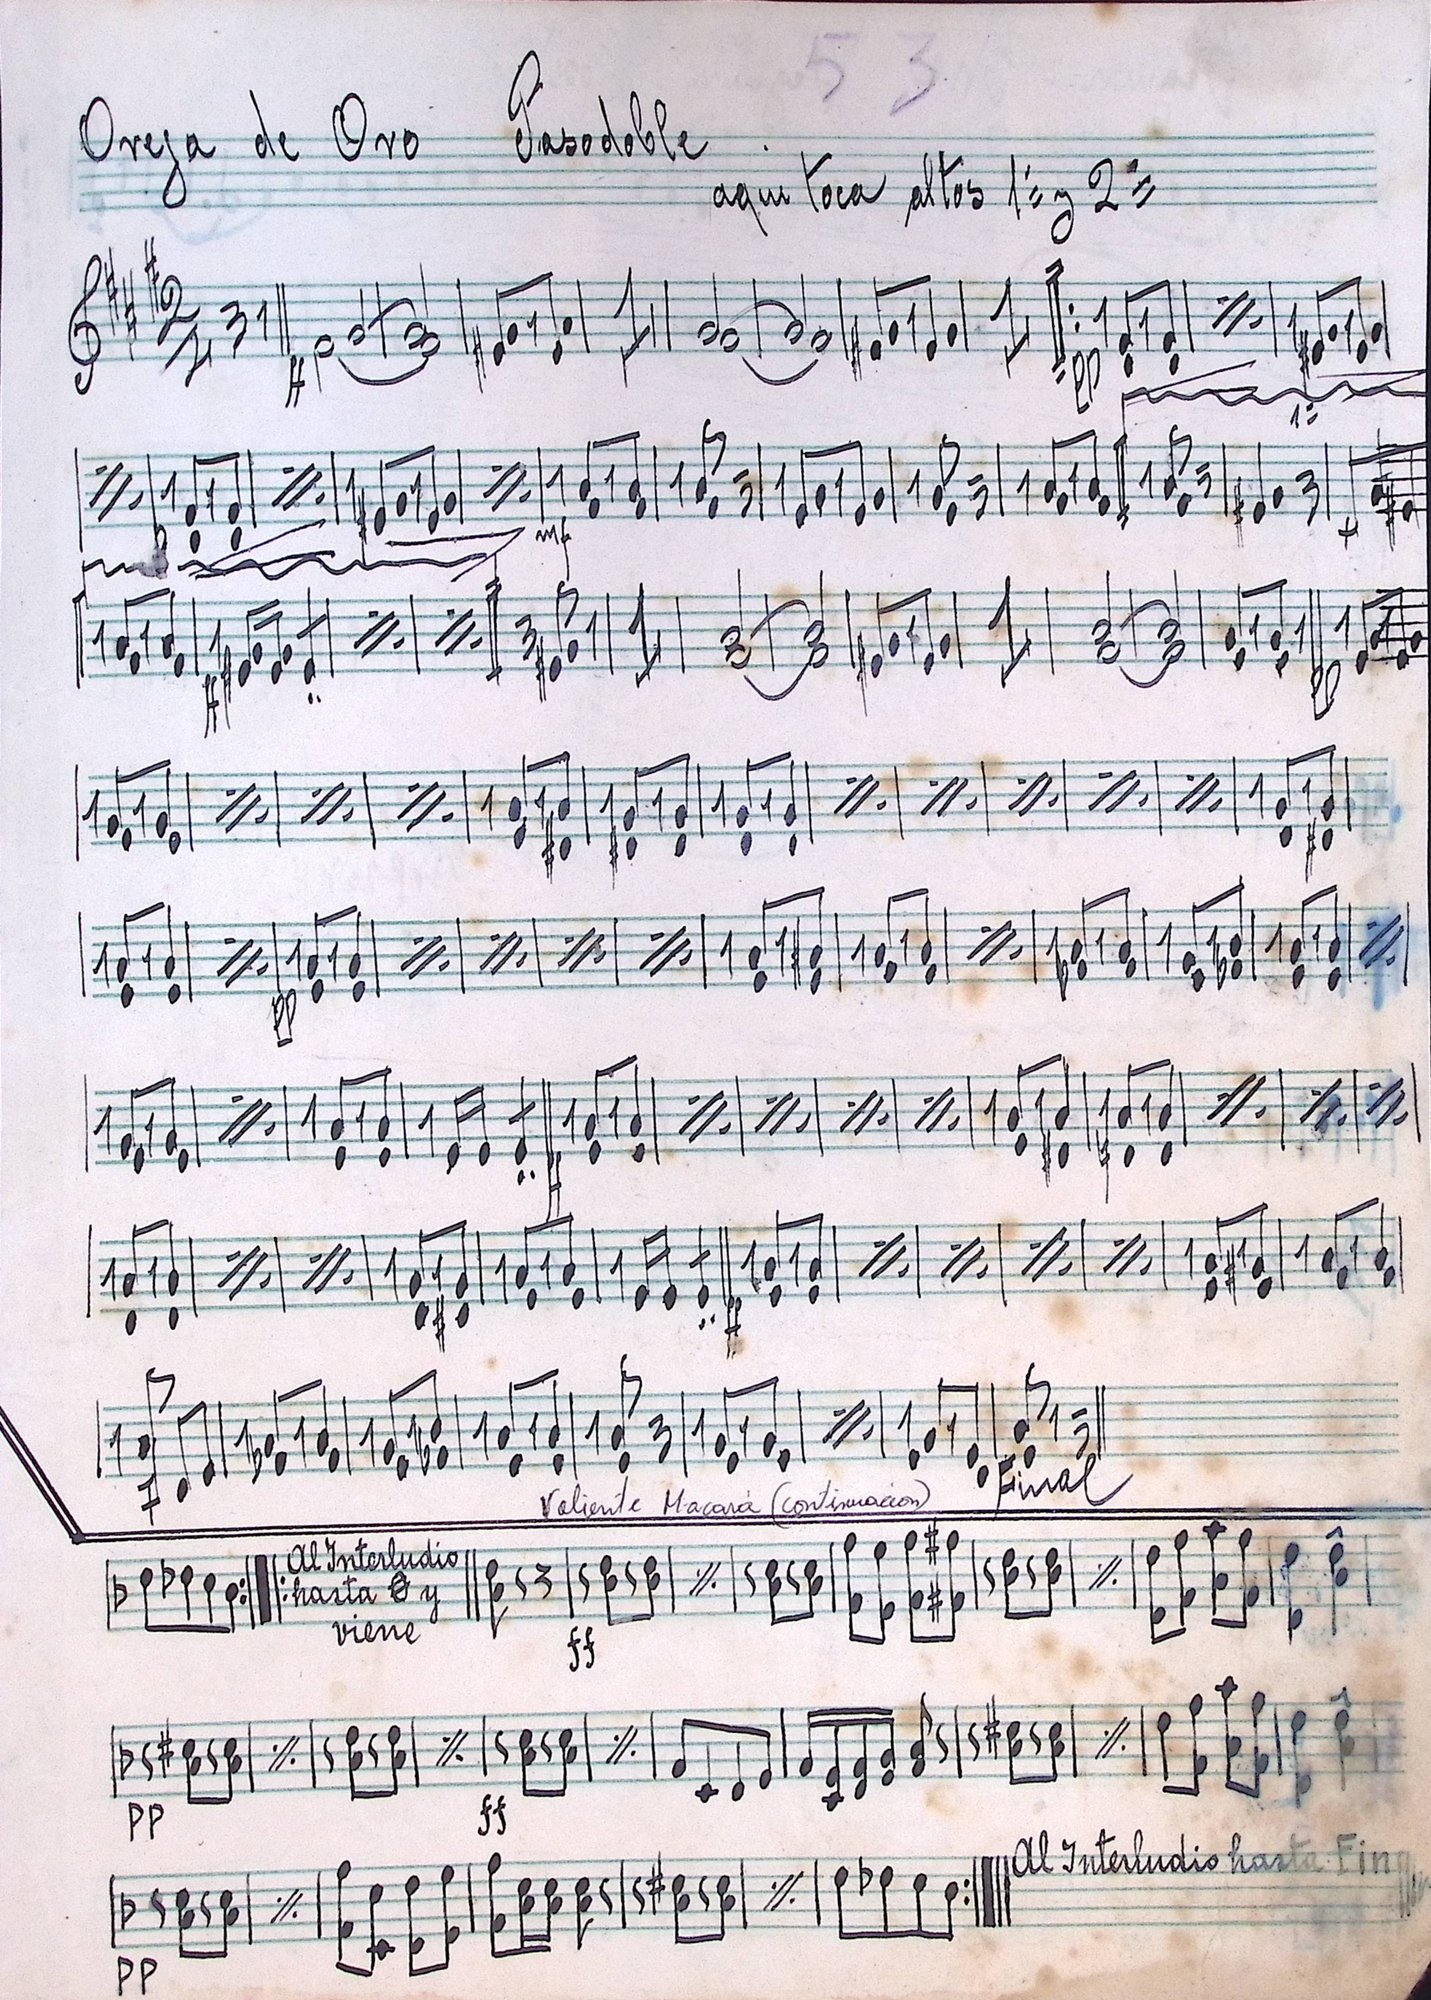 53
Oreja de Oro Pasodoble
aqui toca altos 1º y 2º
pp
1º
p
mf
pp
pp
Final
Valiente Macará (continuacion)
Al Interludio
hasta y
viene
ff
pp
ff
Al Interludio hasta Fin
pp